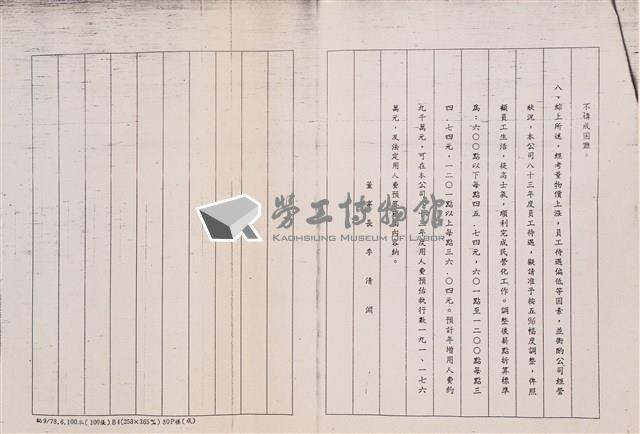 不構成困難。
八、綜上所述，經考量物價上漲，員工待遇偏低等因素，並衡酌公司經營
狀況，本公司八十三年度員工待遇，敬請准予按五%幅度調整，俾照
顧員工生活，提高士氣，順利完成民營化工作。調整後薪點折算標準
為：六〇〇點以下每點四五．七四元，六〇一點至一二〇〇點每點三
四．七四元，一二〇一點以上每點三六．〇四元。預計年增用人費約
九千萬元，可在本公司 年度用人費預估執行數一九一、一七六
萬元，及法定用人費預算 內容納。
董事長 李清淵
勞工博物館
KAOHSIUNG MUSEUM OF LABOR
9/78.6.100本(100張)B4(258×365㎜)80P模(成)